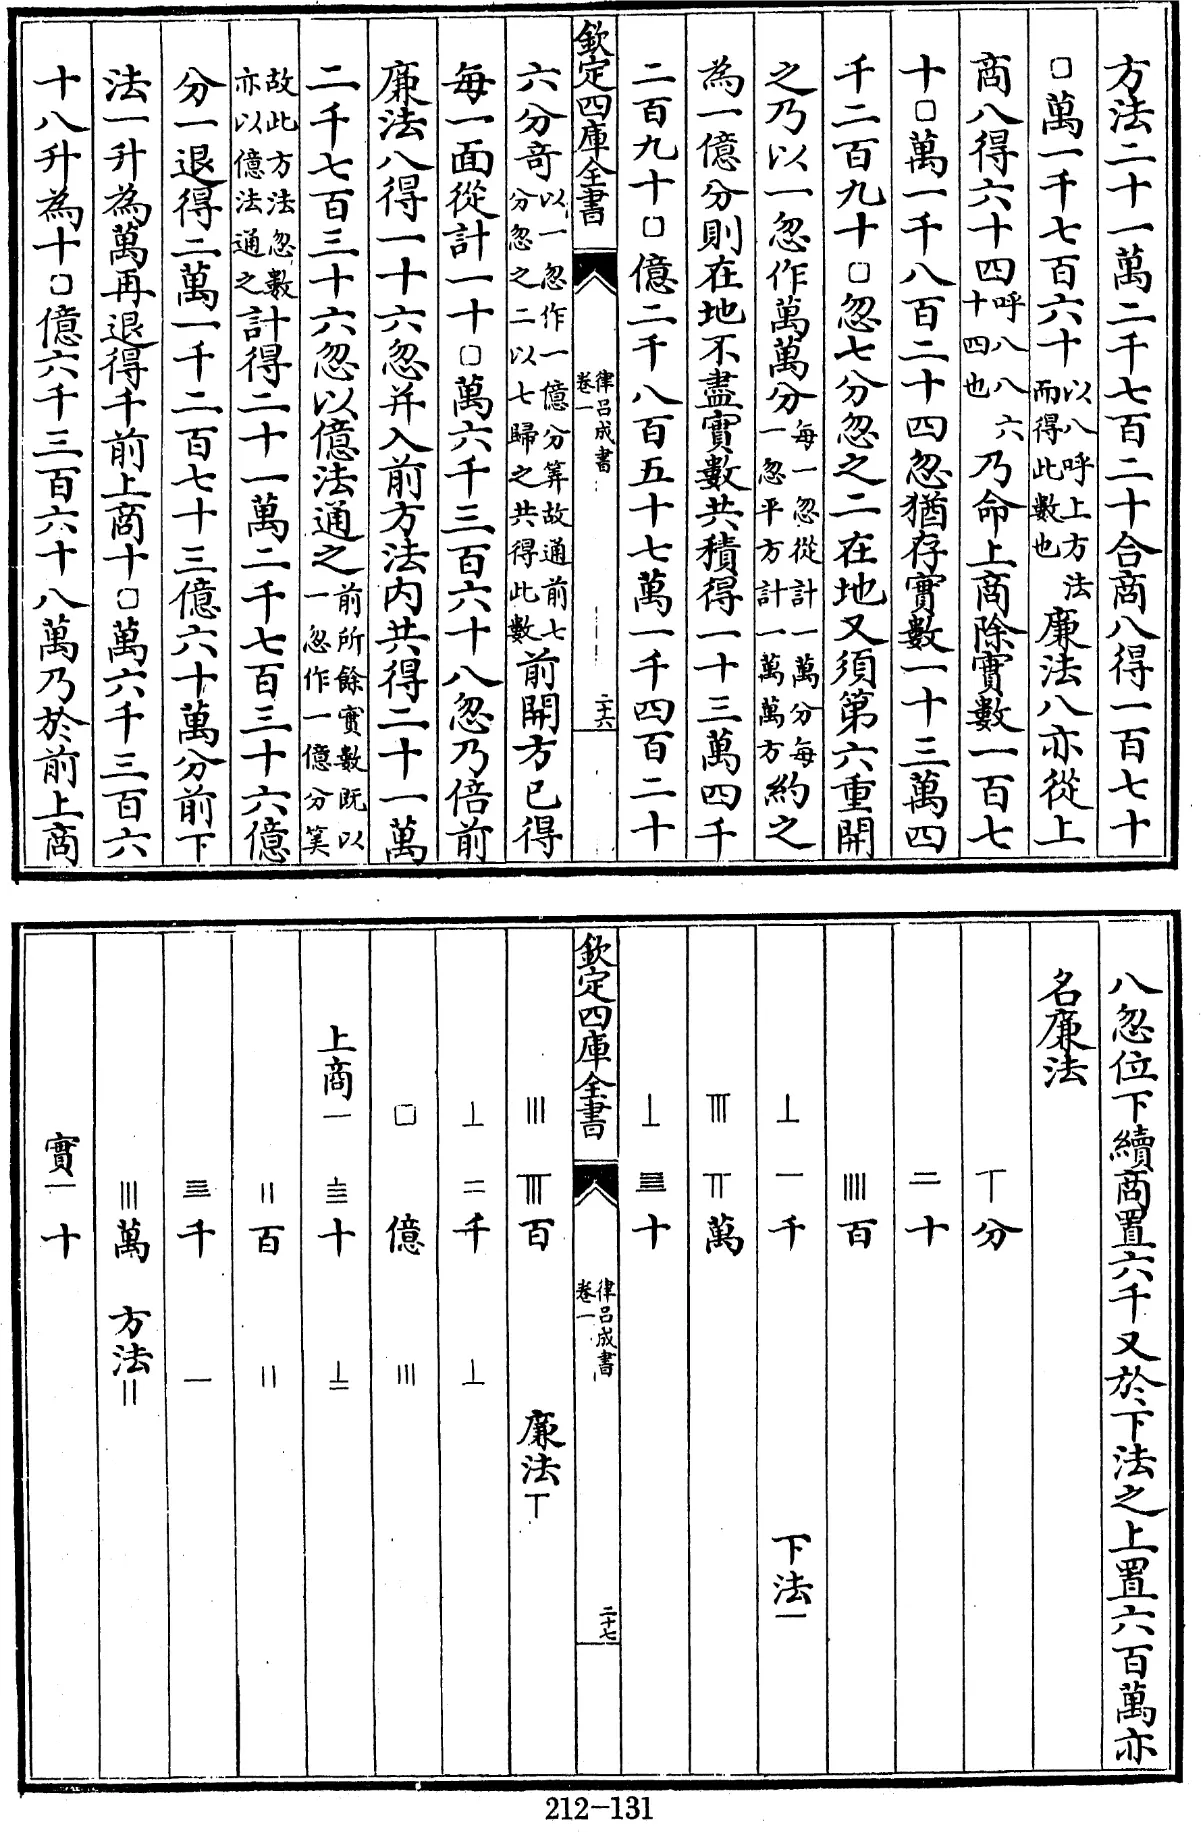 方法二十一萬二千七百二十合商八得一百七十
□萬一千七百六十以八呼上方法而得此數也廉法八亦從上
商八得六十四呼八八六十四也乃命上商除實數一百七
十□萬一千八百二十四忽猶存實數一十三萬四
千二百九十□忽七分忽之二在地又須第六重開
之乃以一忽作萬萬分每一忽從計一萬分每一忽平方計一萬萬方約之
為一億分則在地不盡實數共積得一十三萬四千
二百九十□億二千八百五十七萬一千四百二十
欽定四庫全書
律呂成書
卷一
二十六
六分奇以一忽作一億分筭故通前七分忽之二以七歸之共得此數前開方已得
每一面從計一十□萬六千三百六十八忽乃倍前
廉法八得一十六忽并入前方法内共得二十一萬
二千七百三十六忽以億法通之前所餘實數既以一忽作一億分筭
故此方法忽數亦以億法通之計得二十一萬二千七百三十六億
分一退得二萬一千二百七十三億六十萬分前下
法一升為萬再退得千前上商十□萬六千三百六
十八升為十□億六千三百六十八萬乃於前上商
八忽位下續商置六千又於下法之上置六百萬亦
名廉法
丅分
二十
||||百
⊥ 一千 下法一
|||| 丅丅萬
⊥ 亖十
欽定四庫全書
律呂成書
卷一
二十七
||| 百 廉法丅
⊥ 二千 ⊥
□ 億 |||
上商一 亖十 ⊥
||百 ||
亖千 一
|||萬 方法||
實一 十
212-131